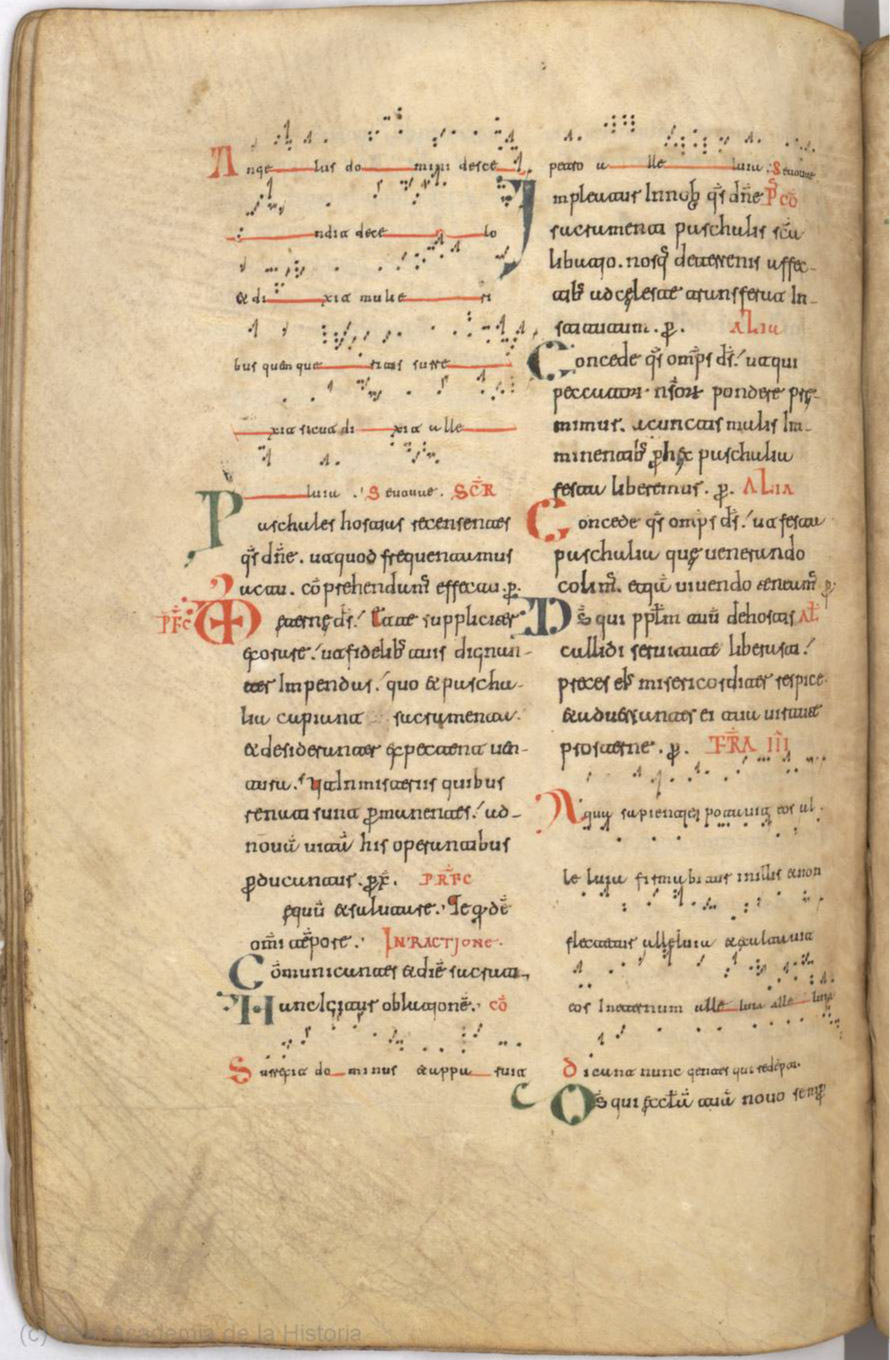 Ange lus do mini desce
ndit de ce lo
& di xit mulie ri
bus quem que ritis surre
xit sicut di xit alle
luia . Seuouae . SCR
Paschales hostias recensentes
qs dne . ut quod frequentamus
actu . coprehendam effectu . p.
PFC eterne ds . Te suppliciter
exorare . ut fidelib tuis dignan
ter impendas . quo & pascha
lia capiant sacramenta .
& desiderantes expectent uen
tura . ut in misteriis quibus
renati sunt pmanentes . ad
nouā uitā his operantibus
pducantur . p x . PRFC
equū & salutare . Te q de
omi tepore . INRACTIONE .
Comunicantes & die sacrat
Hanc igitur oblatione . co
Surrexit do minus & appa ruit
petro a lle luia . Seuouae
Impleatur in nob qs dne P co
sacramenti paschalis sca
libatio . nosq de terrenis affec
tib ad celeste transferat in
stitutum . p . ALIA
Concede qs omps ds . ut qui
peccatorum nrorum pondere pre
mimur . a cunctis malis im
minentib p hec paschalia
festa liberemur . p . ALIA
Concede qs omps ds . ut festa
paschalia que uenerando
colim . etia uiuendo teneam p
Ds qui pplm tuū de hostis AL
callidi seruitute liberasti .
preces ei misericorditer respice
& aduersantes ei tua uirtute
prosterne . p . FRA III
Aqua sapientie potauit eos al
le luia firmabitur in illis & non
flectetur alleluia & exaltauit
eos in eternum alle luia alle luia
Dicant nunc gentes qui redepti
Ds qui ecclā tuā nouo semp
(c) Real Academia de la Historia